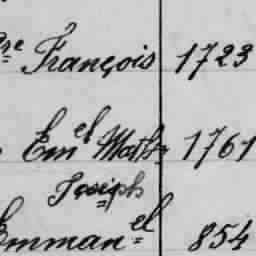 re François 1723
Emel Mathr 1761
Joseph
Emmanel 854